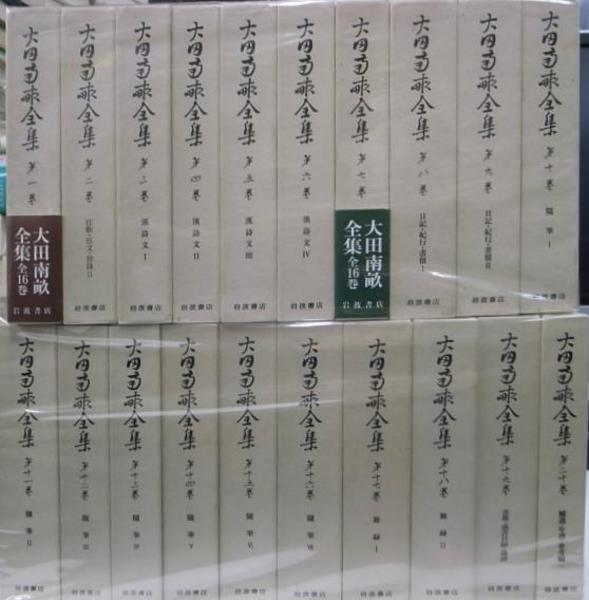 大田南畝全集 第一卷
大田南畝全集 全16巻
岩波書店
大田南畝全集 第二卷
狂歌・狂文・狂詩 II
岩波書店
大田南畝全集 第三卷
漢詩文 I
岩波書店
大田南畝全集 第四卷
漢詩文 II
岩波書店
大田南畝全集 第五卷
漢詩文 III
岩波書店
大田南畝全集 第六卷
漢詩文 IV
岩波書店
大田南畝全集 第七卷
大田南畝全集 全16巻
岩波書店
大田南畝全集 第八卷
日記・紀行・書留 I
岩波書店
大田南畝全集 第九卷
日記・紀行・書留 II
岩波書店
大田南畝全集 第十卷
随筆 I
岩波書店
大田南畝全集 第十一卷
随筆 II
岩波書店
大田南畝全集 第十二卷
随筆 III
岩波書店
大田南畝全集 第十三卷
随筆 IV
岩波書店
大田南畝全集 第十四卷
随筆 V
岩波書店
大田南畝全集 第十五卷
随筆 VI
岩波書店
大田南畝全集 第十六卷
随筆 VII
岩波書店
大田南畝全集 第十七卷
雑録 I
岩波書店
大田南畝全集 第十八卷
雑録 II
岩波書店
大田南畝全集 第十九卷
岩波書店
大田南畝全集 第二十卷
岩波書店